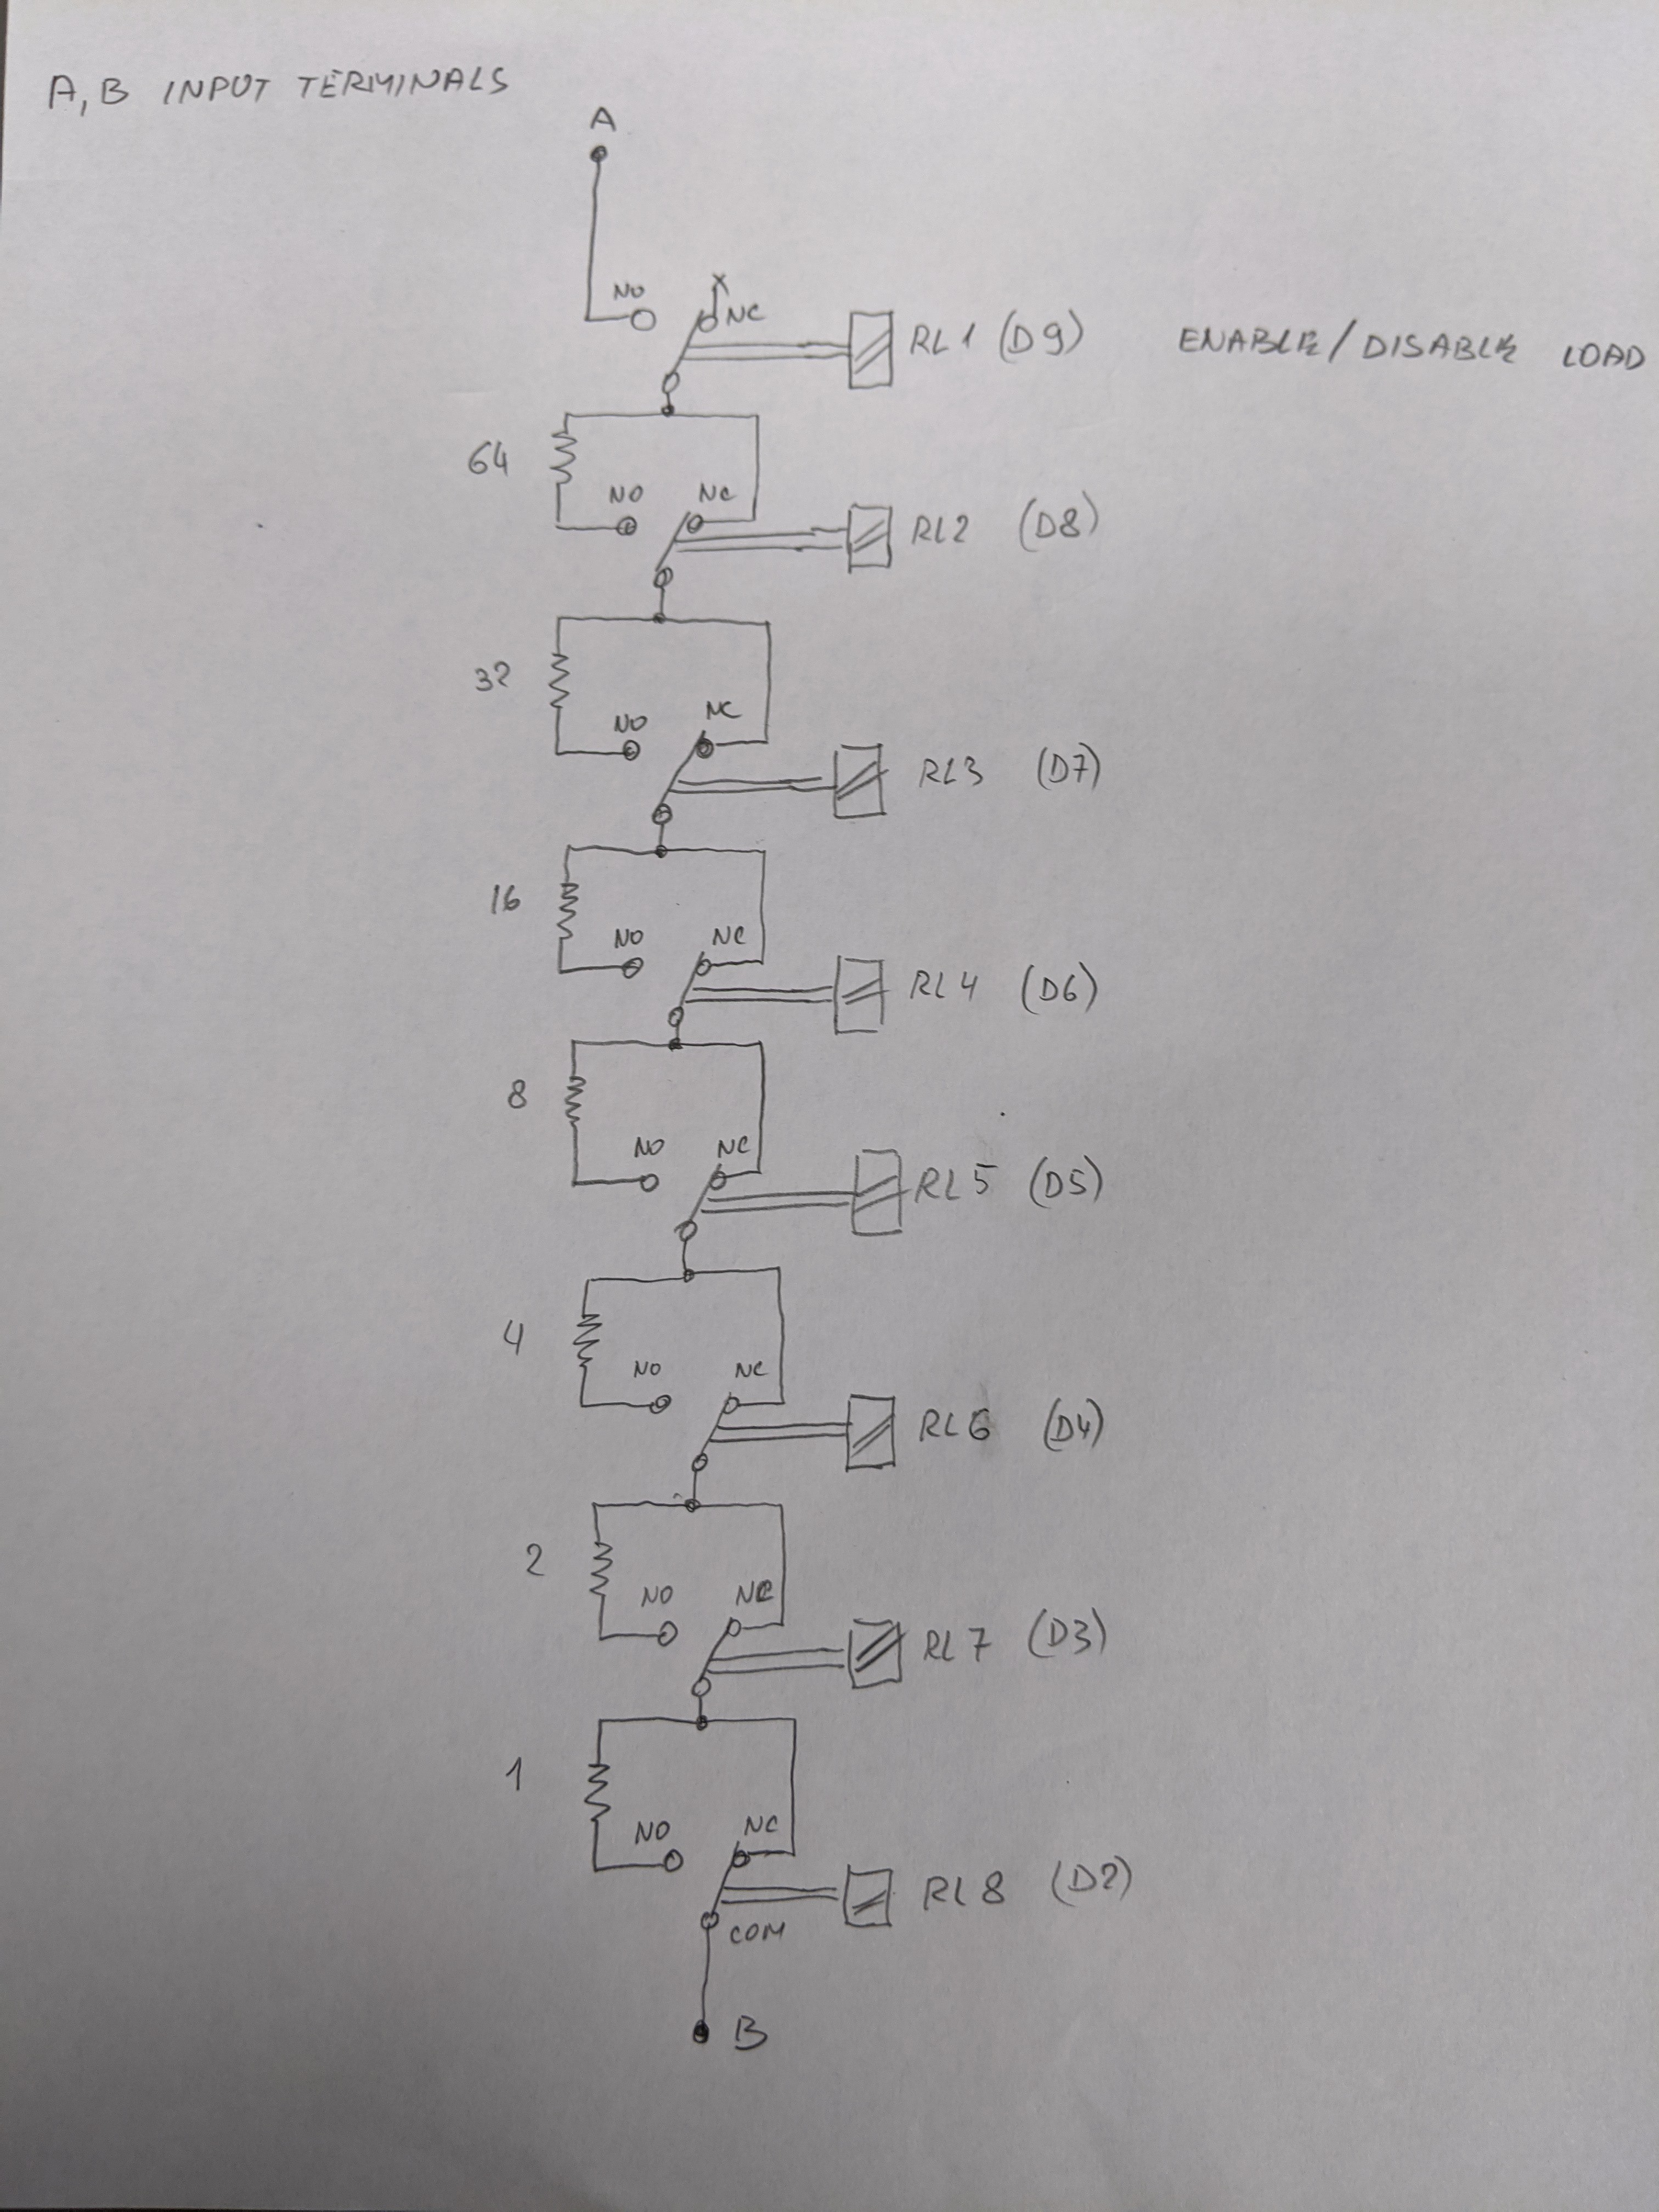 A, B INPUT TERMINALS
A
NO NC
RL1 (D9) ENABLE/DISABLE LOAD
64
NO NC
RL2 (D8)
32
NO NC
RL3 (D7)
16
NO NC
RL4 (D6)
8
NO NC
RL5 (D5)
4
NO NC
RL6 (D4)
2
NO NC
RL7 (D3)
1
NO NC
RL8 (D2)
COM
B